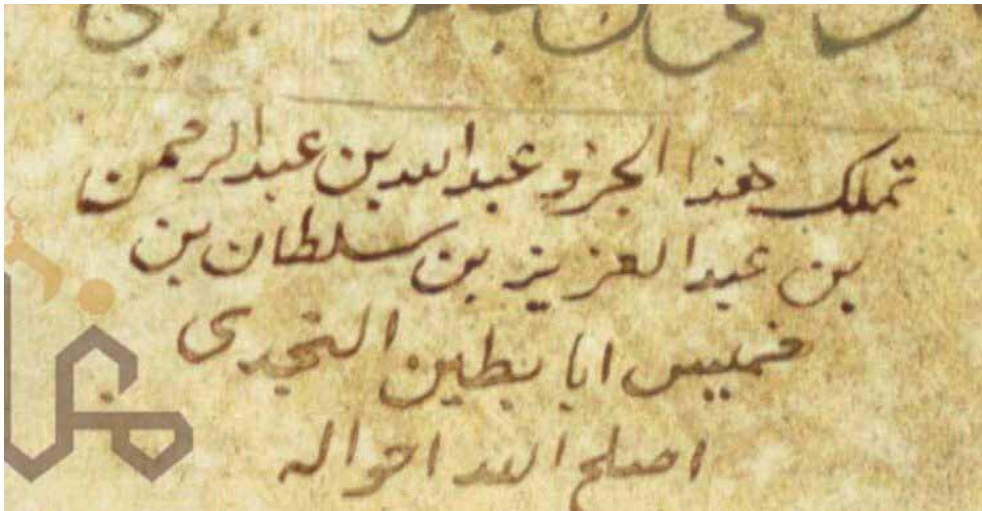 تملك هذا الجزو عبدالله بن عبدالرحمن
بن عبدالعزيز بن سلطان بن
خميس ابا بطين النجدى
اصلح الله احواله